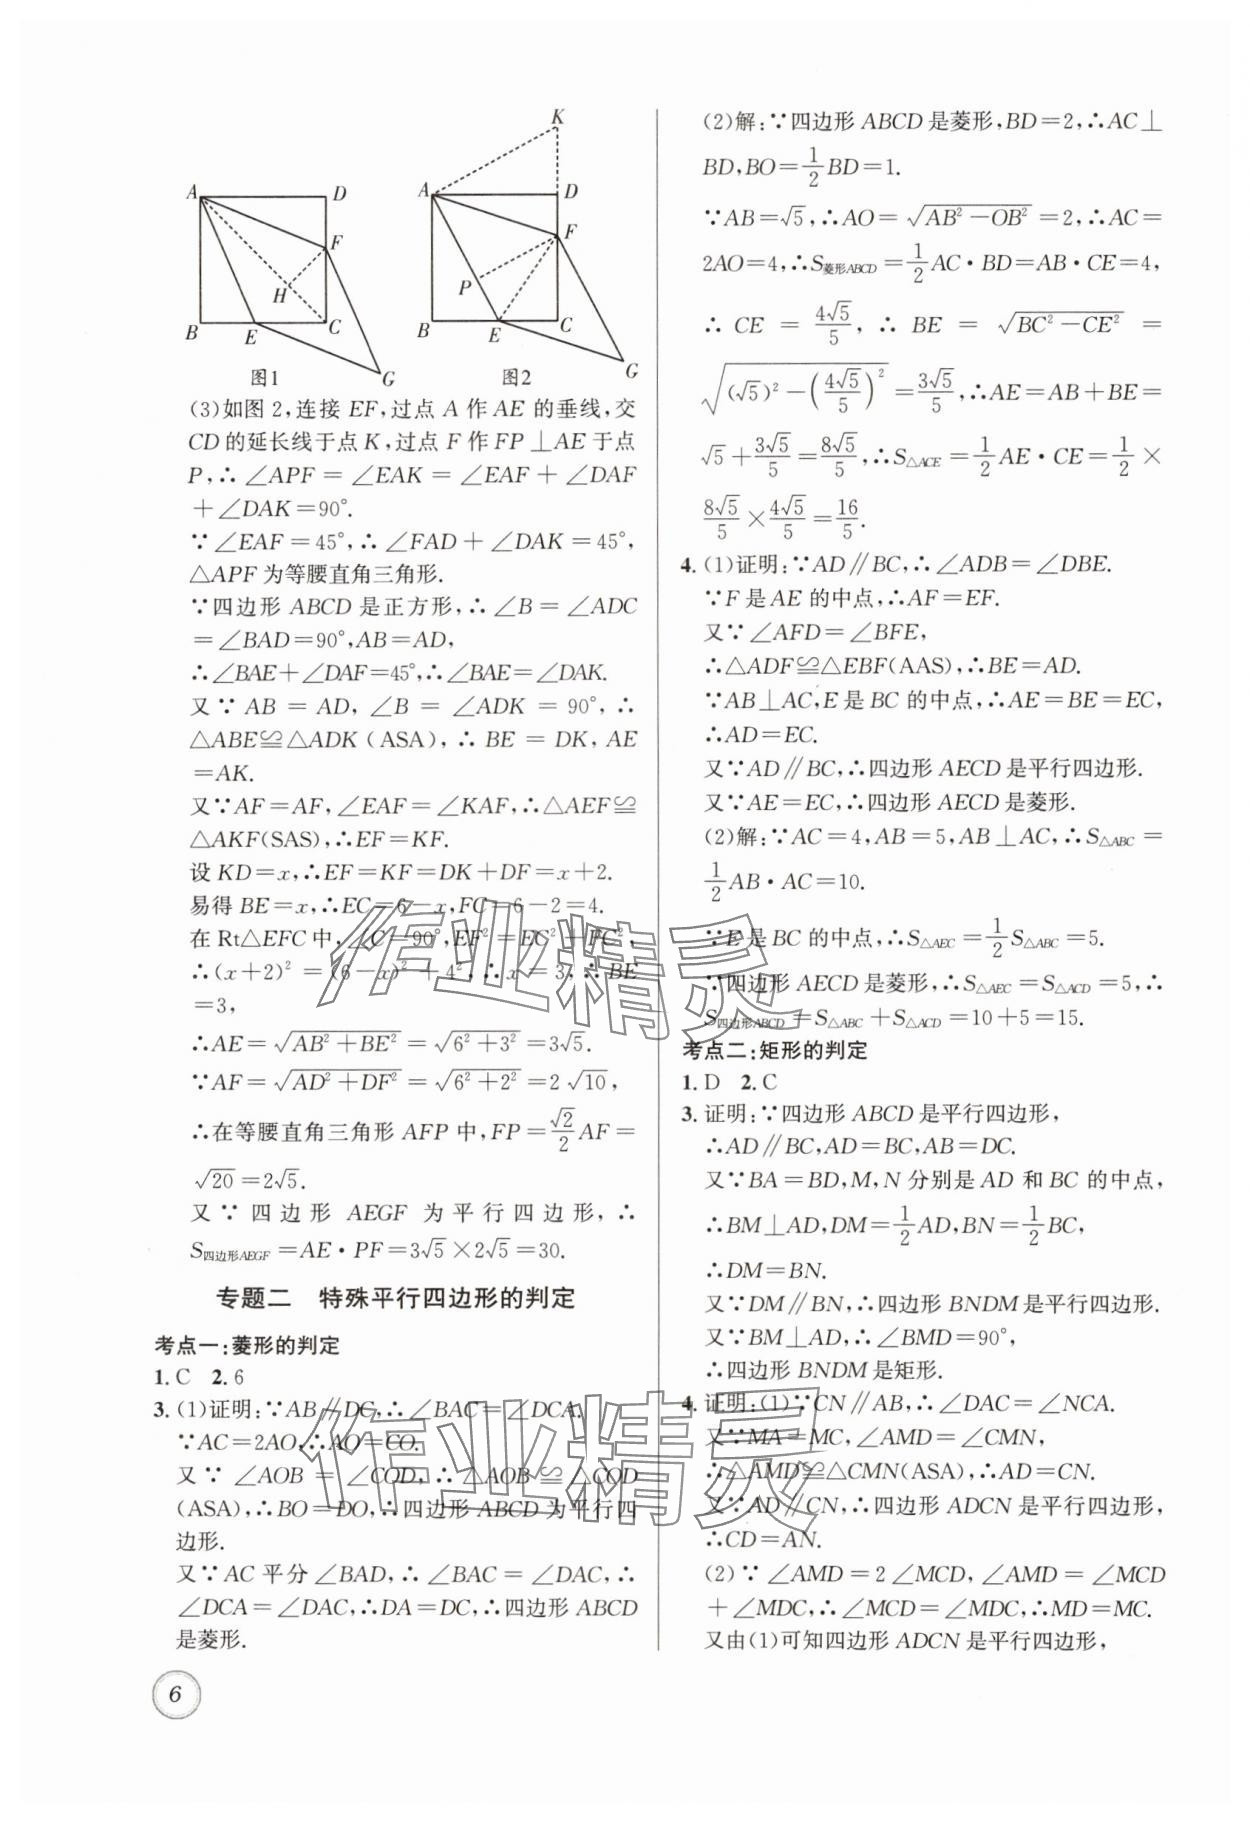 A D F H B E C G
图1
K A D F P B E C G
图2
(3)如图2,连接EF,过点A作AE的垂线,交
CD的延长线于点K,过点F作FP⊥AE于点
P,∴∠APF=∠EAK=∠EAF+∠DAF
+∠DAK=90°.
∵∠EAF=45°,∴∠FAD+∠DAK=45°,
△APF为等腰直角三角形.
∵四边形ABCD是正方形,∴∠B=∠ADC
=∠BAD=90°,AB=AD,
∴∠BAE+∠DAF=45°,∴∠BAE=∠DAK.
又∵AB=AD,∠B=∠ADK=90°,∴
△ABE≌△ADK(ASA),∴BE=DK,AE
=AK.
又∵AF=AF,∠EAF=∠KAF,∴△AEF≌
△AKF(SAS),∴EF=KF.
设KD=x,∴EF=KF=DK+DF=x+2.
易得BE=x,∴EC=6-x,FC=6-2=4.
在Rt△EFC中,∠C=90°,EF²=EC²+FC²,
∴(x+2)²=(6-x)²+4²,∴x=3,∴BE
=3,
∴AE=√(AB²+BE²)=√(6²+3²)=3√5.
∵AF=√(AD²+DF²)=√(6²+2²)=2√10,
∴在等腰直角三角形AFP中,FP=√2/2AF=
√20=2√5.
又∵四边形AEGF为平行四边形,∴
S四边形AEGF=AE·PF=3√5×2√5=30.
专题二 特殊平行四边形的判定
考点一:菱形的判定
1.C 2.6
3.(1)证明:∵AB∥DC,∴∠BAC=∠DCA.
∵AC=2AO,∴AO=CO.
又∵∠AOB=∠COD,∴△AOB≌△COD
(ASA),∴BO=DO,∴四边形ABCD为平行四
边形.
又∵AC平分∠BAD,∴∠BAC=∠DAC,∴
∠DCA=∠DAC,∴DA=DC,∴四边形ABCD
是菱形.
6
(2)解:∵四边形ABCD是菱形,BD=2,∴AC⊥
BD,BO=1/2BD=1.
∵AB=√5,∴AO=√(AB²-OB²)=2,∴AC=
2AO=4,∴S菱形ABCD=1/2AC·BD=AB·CE=4,
∴CE=4√5/5,∴BE=√(BC²-CE²)=
√((√5)²-(4√5/5)²)=3√5/5,∴AE=AB+BE=
√5+3√5/5=8√5/5,∴S△ACE=1/2AE·CE=1/2×
8√5/5×4√5/5=16/5.
4.(1)证明:∵AD∥BC,∴∠ADB=∠DBE.
∵F是AE的中点,∴AF=EF.
又∵∠AFD=∠BFE,
∴△ADF≌△EBF(AAS),∴BE=AD.
∵AB⊥AC,E是BC的中点,∴AE=BE=EC,
∴AD=EC.
又∵AD∥BC,∴四边形AECD是平行四边形.
又∵AE=EC,∴四边形AECD是菱形.
(2)解:∵AC=4,AB=5,AB⊥AC,∴S△ABC=
1/2AB·AC=10.
∵E是BC的中点,∴S△AEC=1/2S△ABC=5.
∵四边形AECD是菱形,∴S△AEC=S△ACD=5,∴
S四边形ABCD=S△ABC+S△ACD=10+5=15.
考点二:矩形的判定
1.D 2.C
3.证明:∵四边形ABCD是平行四边形,
∴AD∥BC,AD=BC,AB=DC.
又∵BA=BD,M,N分别是AD和BC的中点,
∴BM⊥AD,DM=1/2AD,BN=1/2BC,
∴DM=BN.
又∵DM∥BN,∴四边形BNDM是平行四边形.
又∵BM⊥AD,∴∠BMD=90°,
∴四边形BNDM是矩形.
4.证明:(1)∵CN∥AB,∴∠DAC=∠NCA.
又∵MA=MC,∠AMD=∠CMN,
∴△AMD≌△CMN(ASA),∴AD=CN.
又∵AD∥CN,∴四边形ADCN是平行四边形,
∴CD=AN.
(2)∵∠AMD=2∠MCD,∠AMD=∠MCD
+∠MDC,∴∠MCD=∠MDC,∴MD=MC.
又由(1)可知四边形ADCN是平行四边形,
作业精灵
作业精灵